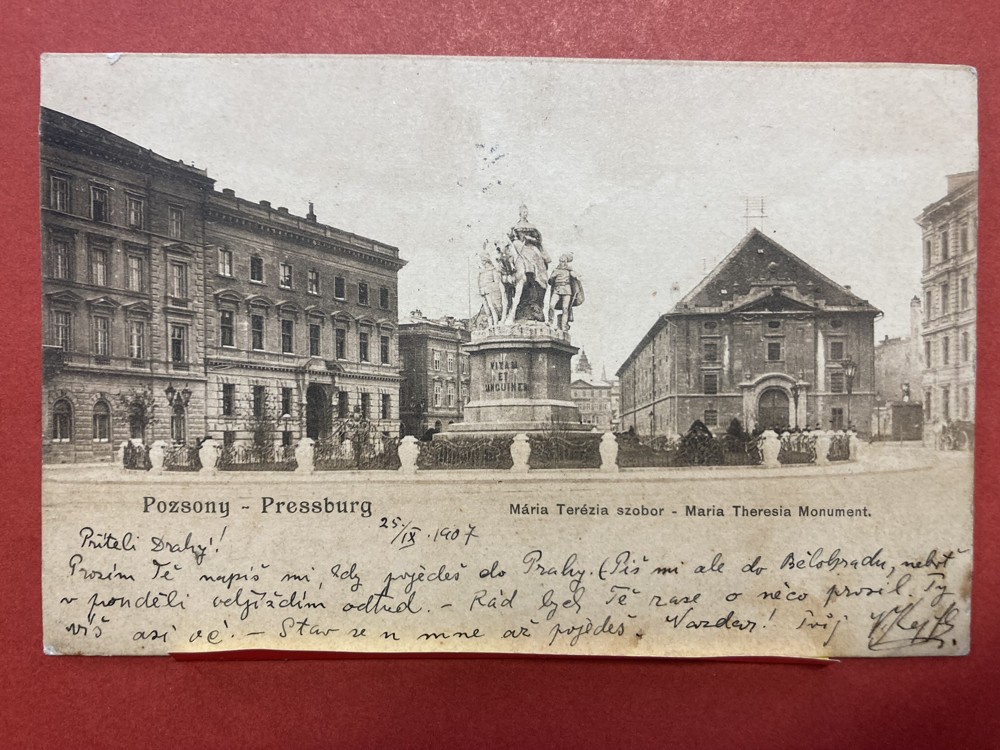 VITAM
ET
SANGUINEM
Pozsony - Pressburg
Mária Terézia szobor - Maria Theresia Monument.
25/IX. 1907
Příteli Drahý!
Prosím Tě napiš mi, kdy pojedeš do Prahy. (Piš mi ale do Bělohradu, neboť
v pondělí odjíždím odtud. - Rád bych Tě zase o něco prosil. Ty
víš asi oč. - Stav se u mne až pojedeš. Nazdar! Tvůj